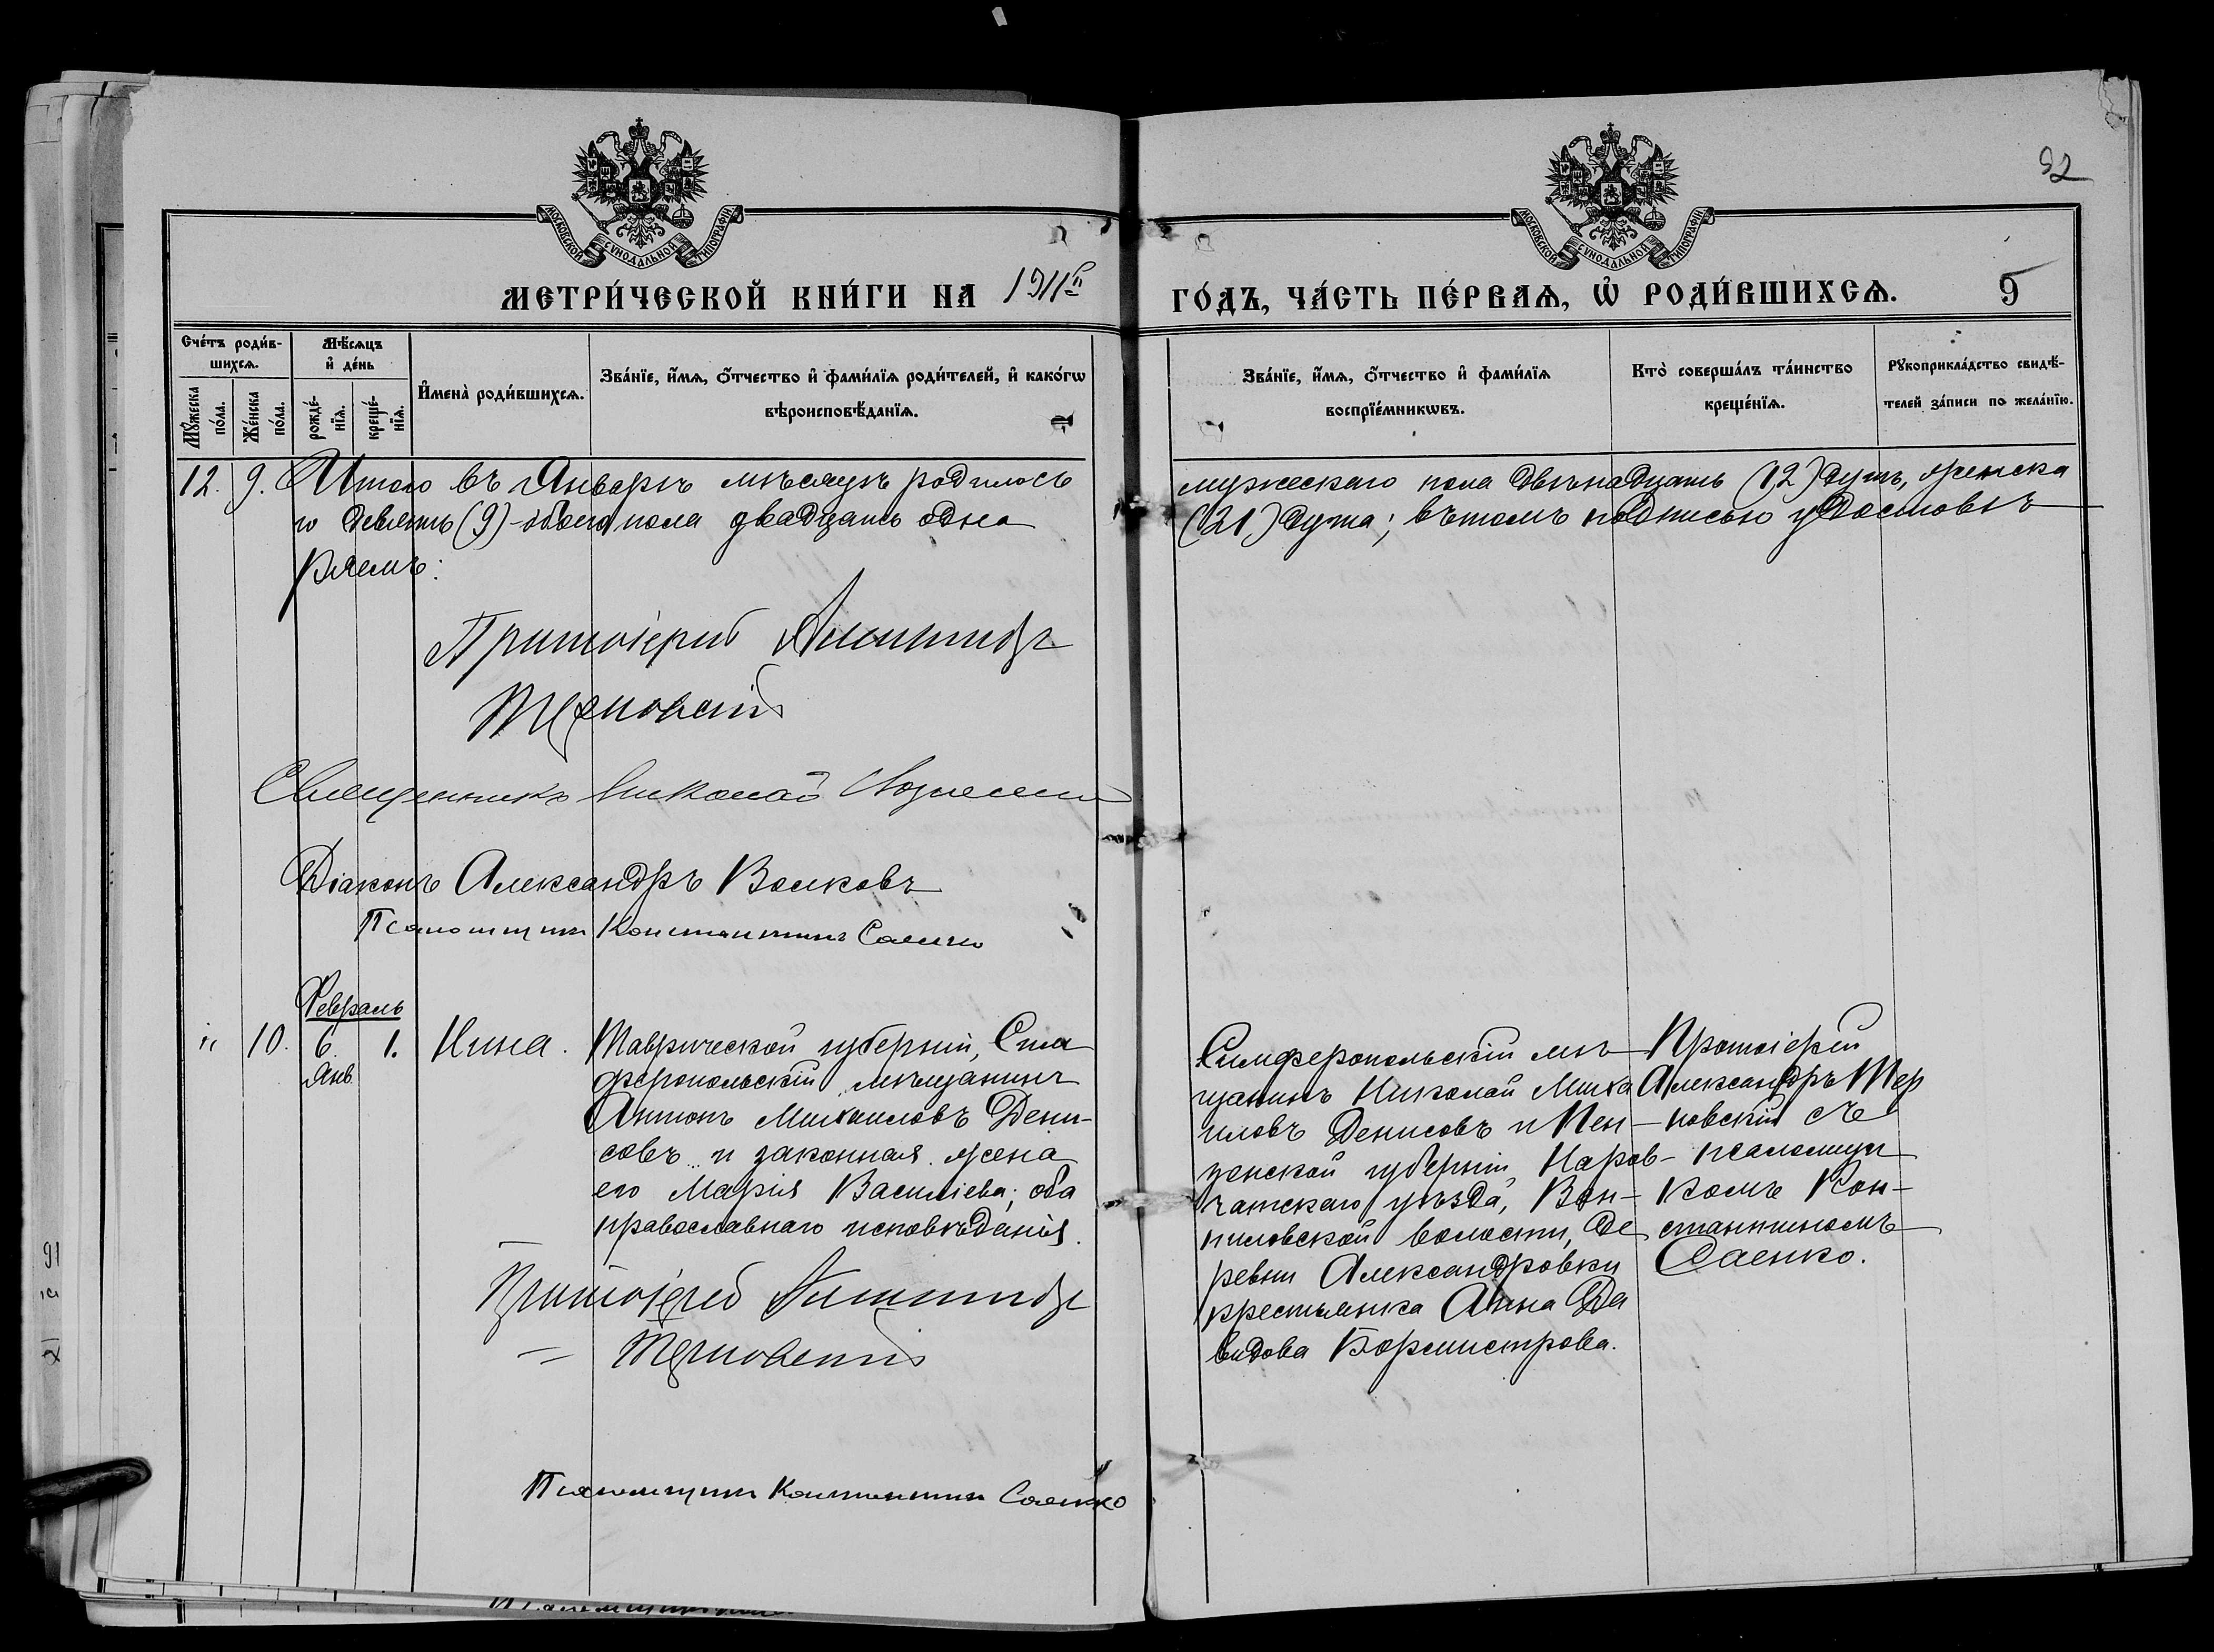 92
МОСКОВСКОЙ СѴНОДАЛЬНОЙ ТИПОГРАФІИ
МОСКОВСКОЙ СѴНОДАЛЬНОЙ ТИПОГРАФІИ
МЕТРИ́ЧЕСКОЙ КНИ́ГИ НА 1911й
ГО́ДЪ, ЧА́СТЬ ПЕ́РВАѦ, Ѡ҆ РОДИ́ВШИХСѦ. 5
Сче́тъ роди́в-
шихсѧ.
Мѣ́сѧцъ
и҆ де́нь
Мꙋ́жеска по́ла.
Же́нска по́ла.
рожде́-нїѧ.
креще́-нїѧ.
И҆мена̀ роди́вшихсѧ.
Зва́нїе, и҆́мѧ, ѻ҆́тчество и҆ фами́лїѧ роди́телей, и҆ како́гѡ
вѣроисповѣ́данїѧ.
Зва́нїе, и҆́мѧ, ѻ҆́тчество и҆ фами́лїѧ
воспрїе́мникѡвъ.
Кто̀ соверша́лъ та́инство
креще́нїѧ.
Рꙋкоприкла́дство свидѣ́-
телей за́писи по жела́нїю.
12. 9. Итого въ Январѣ мѣсяцѣ родилось
мужескаго пола двѣнадцать (12) душъ, женска
го девять (9) - обоего пола двадцать одна
(21) душа; въ томъ подписью удостовѣ
ряемъ:
Протоіерей
Терновскій
Священникъ Николай
Діаконъ Александръ Волковъ
Псаломщикъ Константинъ Саенко
Февраль
" 10. 6. 1. Нина.
Янв.
Таврической губерніи, Сим
феропольскій мѣщанинъ
Антонъ Михаиловъ Дени-
совъ и законная жена
его Марія Василіева; оба
православнаго исповѣданія.
Симферопольскій мѣ
щанинъ Николай Миха
иловъ Денисовъ и Пен-
зенской губерніи Наров-
чатскаго уѣзда,
пиловской волости, де
ревни Александровки
крестьянка Анна Да
видова Бормистрова.
Протоіерей
Александръ Тер
новскій съ
псаломщи
комъ Кон-
стантиномъ
Саенко.
Протоіерей
Терновскій
Псаломщикъ Константинъ Саенко